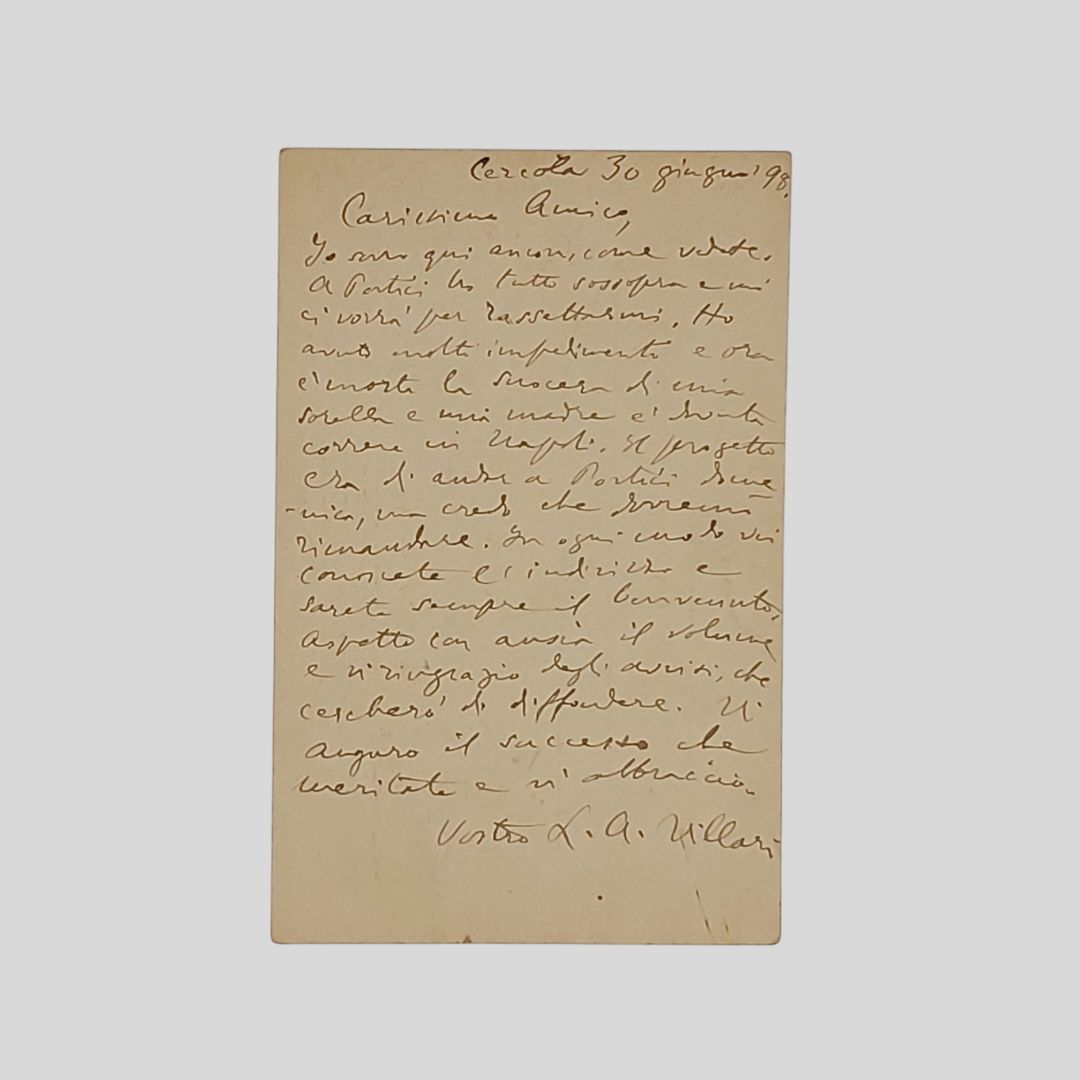 Cercola 30 giugno '98.
Carissimo Amico,
Io sono qui ancora, come vedete.
A Portici ho tutto sossopra e mi
ci vorrà per rassettarmi. Ho
avuto molti impedimenti e ora
è morta la suocera di mia
sorella e mia madre è dovuta
correre in Napoli. Il progetto
era di andar a Portici dome
-nica, ma credo che dovremo
rimandare. In ogni modo voi
conoscete l'indirizzo e
sarete sempre il benvenuto.
Aspetto con ansia il volume
e vi ringrazio degli avvisi, che
cercherò di diffondere. Vi
auguro il successo che
meritate e vi abbraccio.
Vostro L. A. Villari